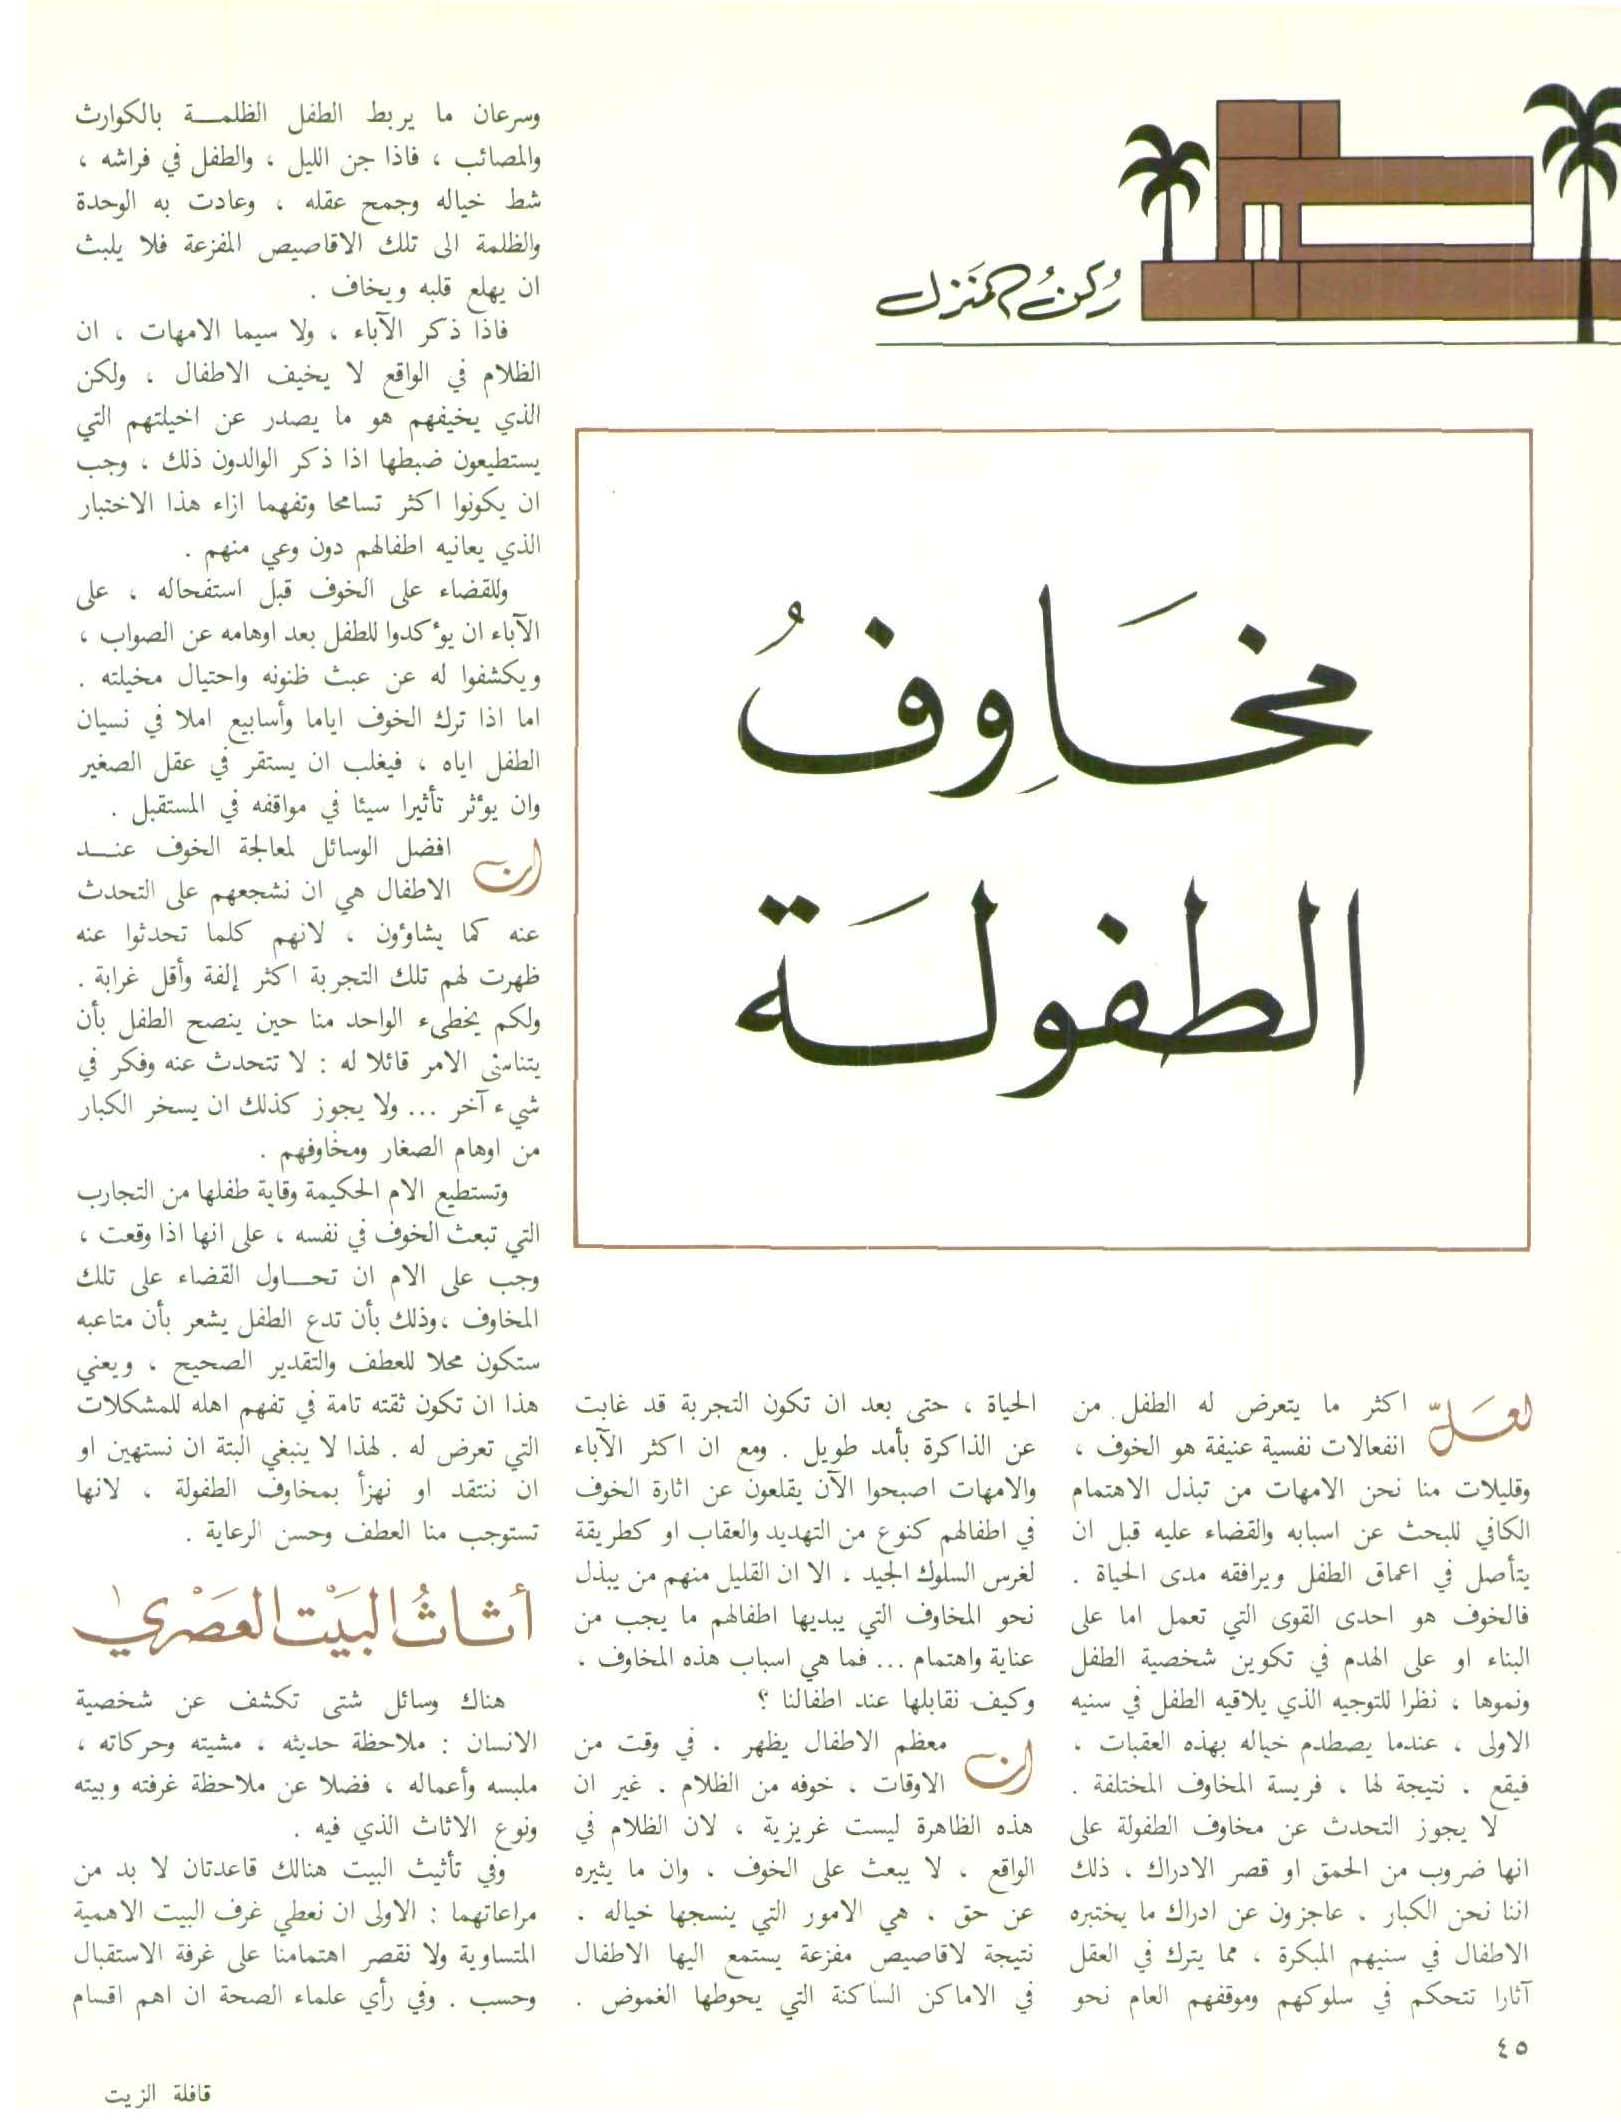 ركن المنزل
مخاوف
الطفولة
لعل اكثر ما يتعرض له الطفل من
انفعالات نفسية عنيفة هو الخوف ،
وقليلات منا نحن الامهات من تبذل الاهتمام
الكافي للبحث عن اسبابه والقضاء عليه قبل ان
يتأصل في اعماق الطفل ويرافقه مدى الحياة .
فالخوف هو احدى القوى التي تعمل اما على
البناء او على الهدم في تكوين شخصية الطفل
ونموها ، نظرا للتوجيه الذي يلاقيه الطفل في سنيه
الاولى ، عندما يصطدم خياله بهذه العقبات ،
فيقع ، نتيجة لها ، فريسة المخاوف المختلفة .
لا يجوز التحدث عن مخاوف الطفولة على
انها ضروب من الحمق او قصر الادراك ، ذلك
اننا نحن الكبار ، عاجزون عن ادراك ما يختبره
الاطفال في سنيهم المبكرة ، مما يترك في العقل
آثارا تتحكم في سلوكهم وموقفهم العام نحو
الحياة ، حتى بعد ان تكون التجربة قد غابت
عن الذاكرة بأمد طويل . ومع ان اكثر الآباء
والامهات اصبحوا الآن يقلعون عن اثارة الخوف
في اطفالهم كنوع من التهديد والعقاب او كطريقة
لغرس السلوك الجيد ، الا ان القليل منهم من يبذل
نحو المخاوف التي يبديها اطفالهم ما يجب من
عناية واهتمام ... فما هي اسباب هذه المخاوف ،
وكيف نقابلها عند اطفالنا ؟
ان معظم الاطفال يظهر ، في وقت من
الاوقات ، خوفه من الظلام . غير ان
هذه الظاهرة ليست غريزية ، لان الظلام في
الواقع ، لا يبعث على الخوف ، وان ما يثيره
عن حق ، هي الامور التي ينسجها خياله ،
نتيجة لاقاصيص مفزعة يستمع اليها الاطفال
في الاماكن الساكنة التي يحوطها الغموض .
وسرعان ما يربط الطفل الظلمة بالكوارث
والمصائب ، فاذا جن الليل ، والطفل في فراشه ،
شط خياله وجمح عقله ، وعادت به الوحدة
والظلمة الى تلك الاقاصيص المفزعة فلا يلبث
ان يهلع قلبه ويخاف .
فاذا ذكر الآباء ، ولا سيما الامهات ، ان
الظلام في الواقع لا يخيف الاطفال ، ولكن
الذي يخيفهم هو ما يصدر عن اخيلتهم التي
يستطيعون ضبطها اذا ذكر الوالدون ذلك ، وجب
ان يكونوا اكثر تسامحا وتفهما ازاء هذا الاختبار
الذي يعانيه اطفالهم دون وعي منهم .
وللقضاء على الخوف قبل استفحاله ، على
الآباء ان يؤكدوا للطفل بعد اوهامه عن الصواب ،
ويكشفوا له عن عبث ظنونه واحتيال مخيلته .
اما اذا ترك الخوف اياما وأسابيع املا في نسيان
الطفل اياه ، فيغلب ان يستقر في عقل الصغير
وان يؤثر تأثيرا سيئا في مواقفه في المستقبل .
ان افضل الوسائل لمعالجة الخوف عند
الاطفال هي ان نشجعهم على التحدث
عنه كما يشاؤون ، لانهم كلما تحدثوا عنه
ظهرت لهم تلك التجربة اكثر إلفة وأقل غرابة .
ولكم يخطىء الواحد منا حين ينصح الطفل بأن
يتناسى الامر قائلا له : لا تتحدث عنه وفكر في
شيء آخر ... ولا يجوز كذلك ان يسخر الكبار
من اوهام الصغار ومخاوفهم .
وتستطيع الام الحكيمة وقاية طفلها من التجارب
التي تبعث الخوف في نفسه ، على انها اذا وقعت ،
وجب على الام ان تحاول القضاء على تلك
المخاوف ، وذلك بأن تدع الطفل يشعر بأن متاعبه
ستكون محلا للعطف والتقدير الصحيح ، ويعني
هذا ان تكون ثقته تامة في تفهم اهله للمشكلات
التي تعرض له . لهذا لا ينبغي البتة ان نستهين او
ان ننتقد او نهزأ بمخاوف الطفولة ، لانها
تستوجب منا العطف وحسن الرعاية .
أثاث البيت العصري
هناك وسائل شتى تكشف عن شخصية
الانسان : ملاحظة حديثه ، مشيته وحركاته ،
ملبسه وأعماله ، فضلا عن ملاحظة غرفته وبيته
ونوع الاثاث الذي فيه .
وفي تأثيث البيت هنالك قاعدتان لا بد من
مراعاتهما : الاولى ان نعطي غرف البيت الاهمية
المتساوية ولا نقصر اهتمامنا على غرفة الاستقبال
وحسب . وفي رأي علماء الصحة ان اهم اقسام
٤٥
قافلة الزيت